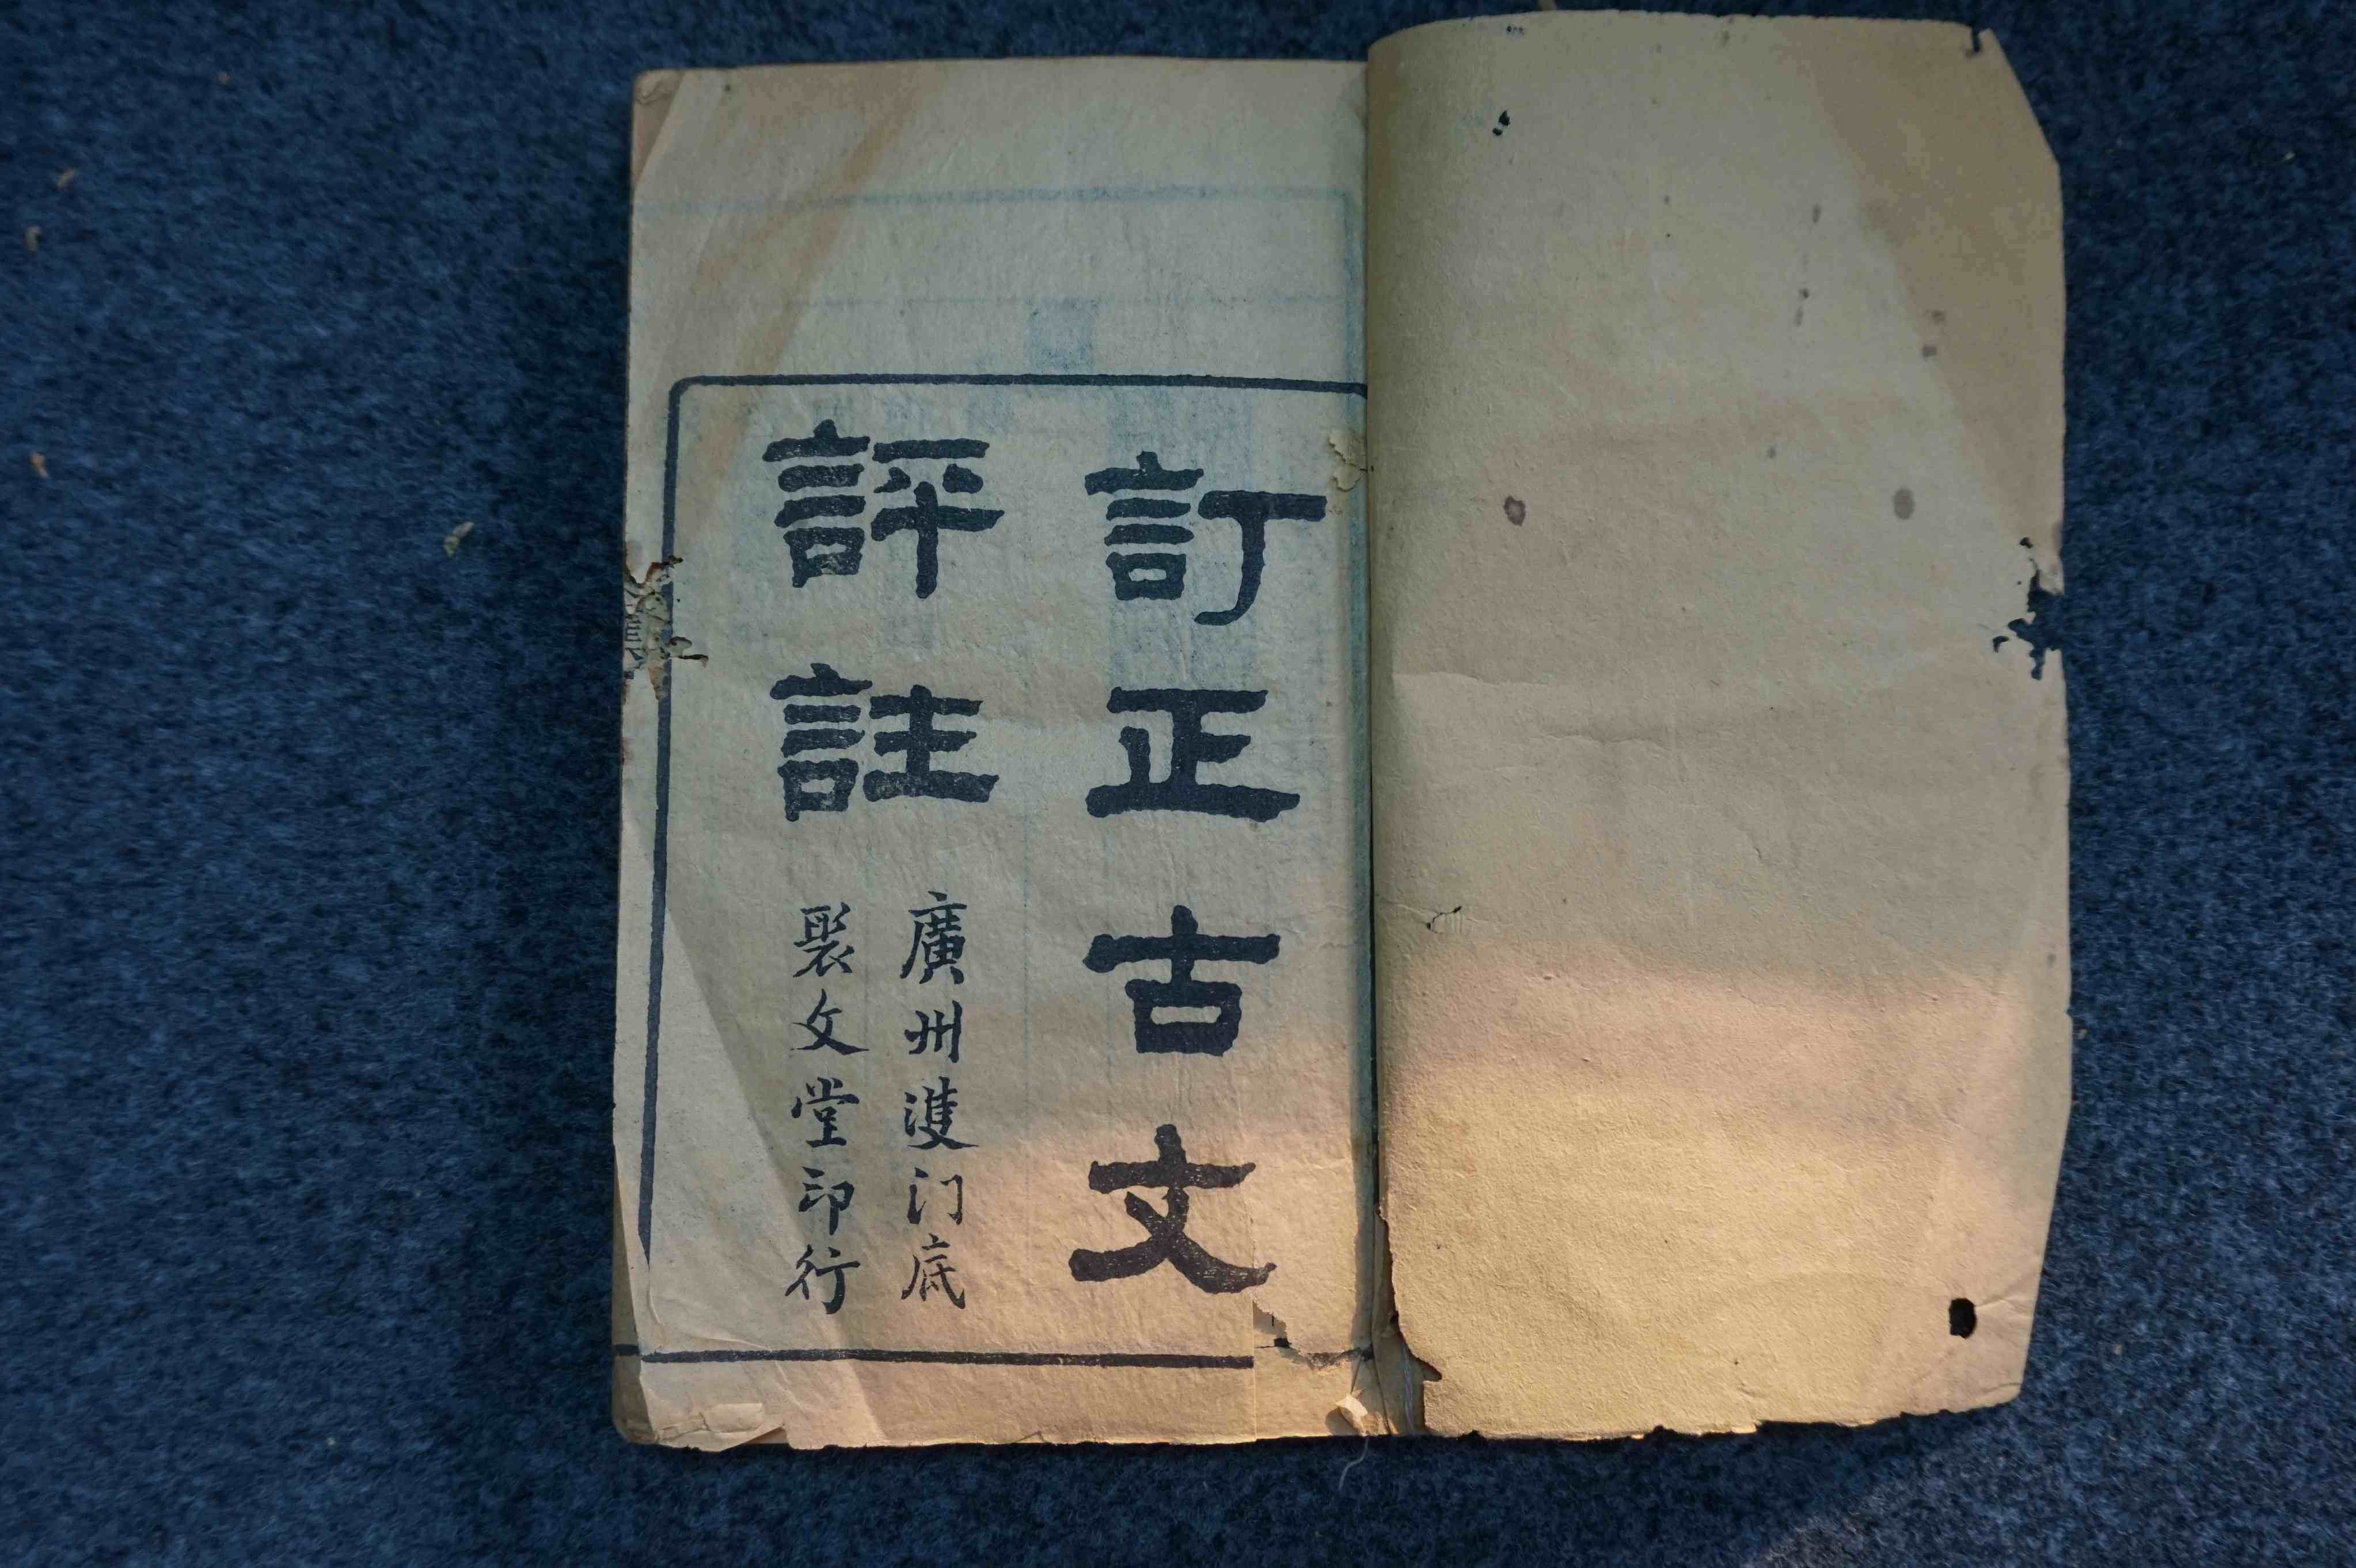 訂正古文
評註
廣州雙门底
聚文堂印行